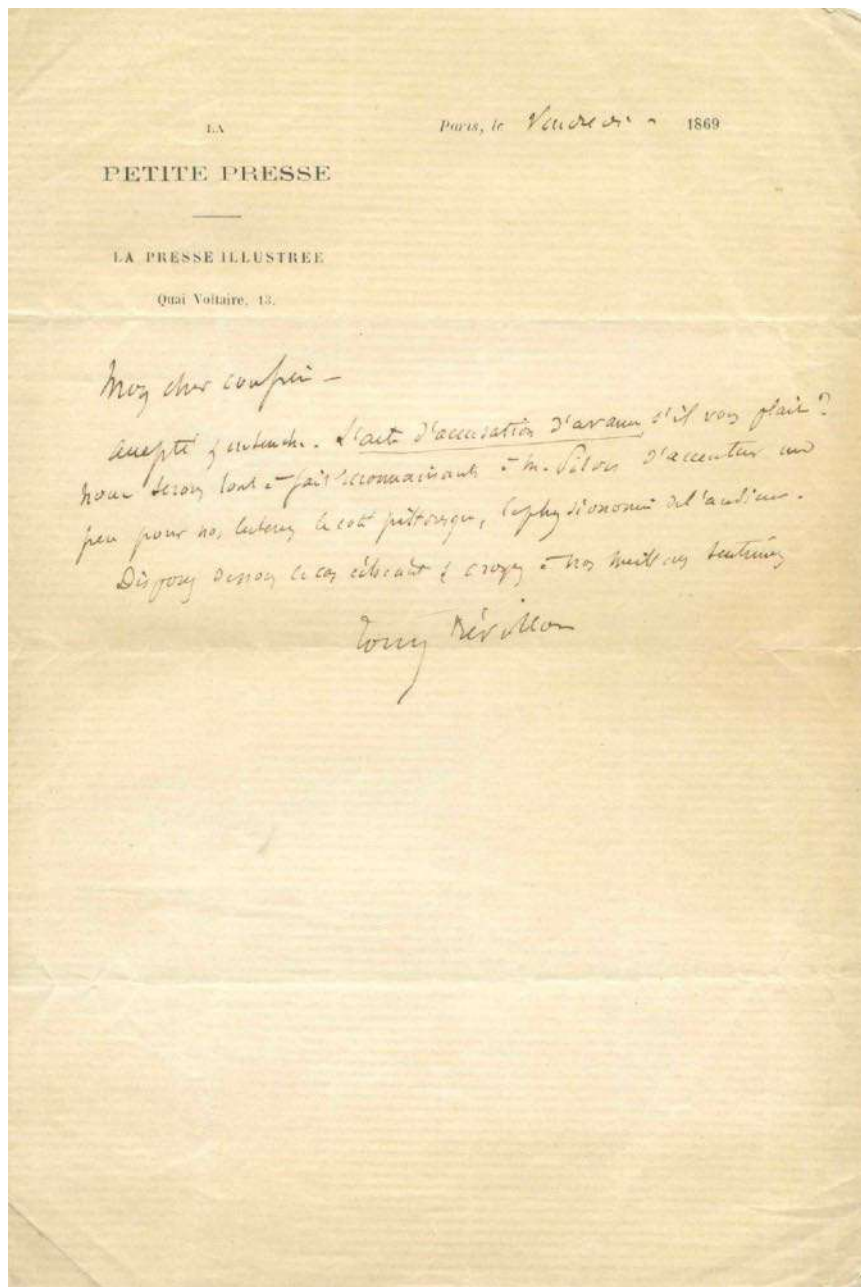 LA
PETITE PRESSE
LA PRESSE ILLUSTRÉE
Quai Voltaire, 13.
Paris, le Vendredi 1869
Mon cher confrère —
Accepté & entendu. L'acte d'accusation d'avance, s'il vous plaît ?
Nous serons tout à fait reconnaissants à M. d'accentuer un
peu pour nos lecteurs le côté pittoresque, la physionomie de l'audience.
Disposez de nous le cas échéant & croyez à nos meilleurs sentiments
Tony Révillon